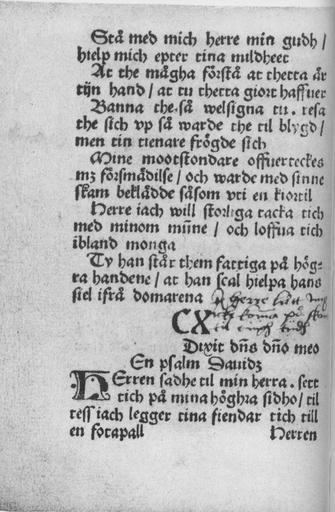 Stå med mich herre min gudh /
hielp mich epter tina mildheet
At the mågha förstå at thetta är
tijn hand / at tu thetta giort haffuer
Banna the så welsigna tu. resa
the sich vp så warde the til blygd /
men tin tienare frögde sich
Mine mootstondare offuerteckes
mz försmådilse / och warde med sinne
skam beklädde såsom vti en kiortil
Herre iach will storliga tacka tich
med minom mūne / och loffua tich
ibland monga
Ty han står them fattiga på hög-
ra handene / at han scal hielpa hans
siel ifrå domarena
CX
Dixit dn̄s dn̄o meo
En psalm Dauidz
HErren sadhe til min herra. sett
tich på mina höghra sidho / til
tess iach legger tina fiendar tich till
en fotapall
Herren